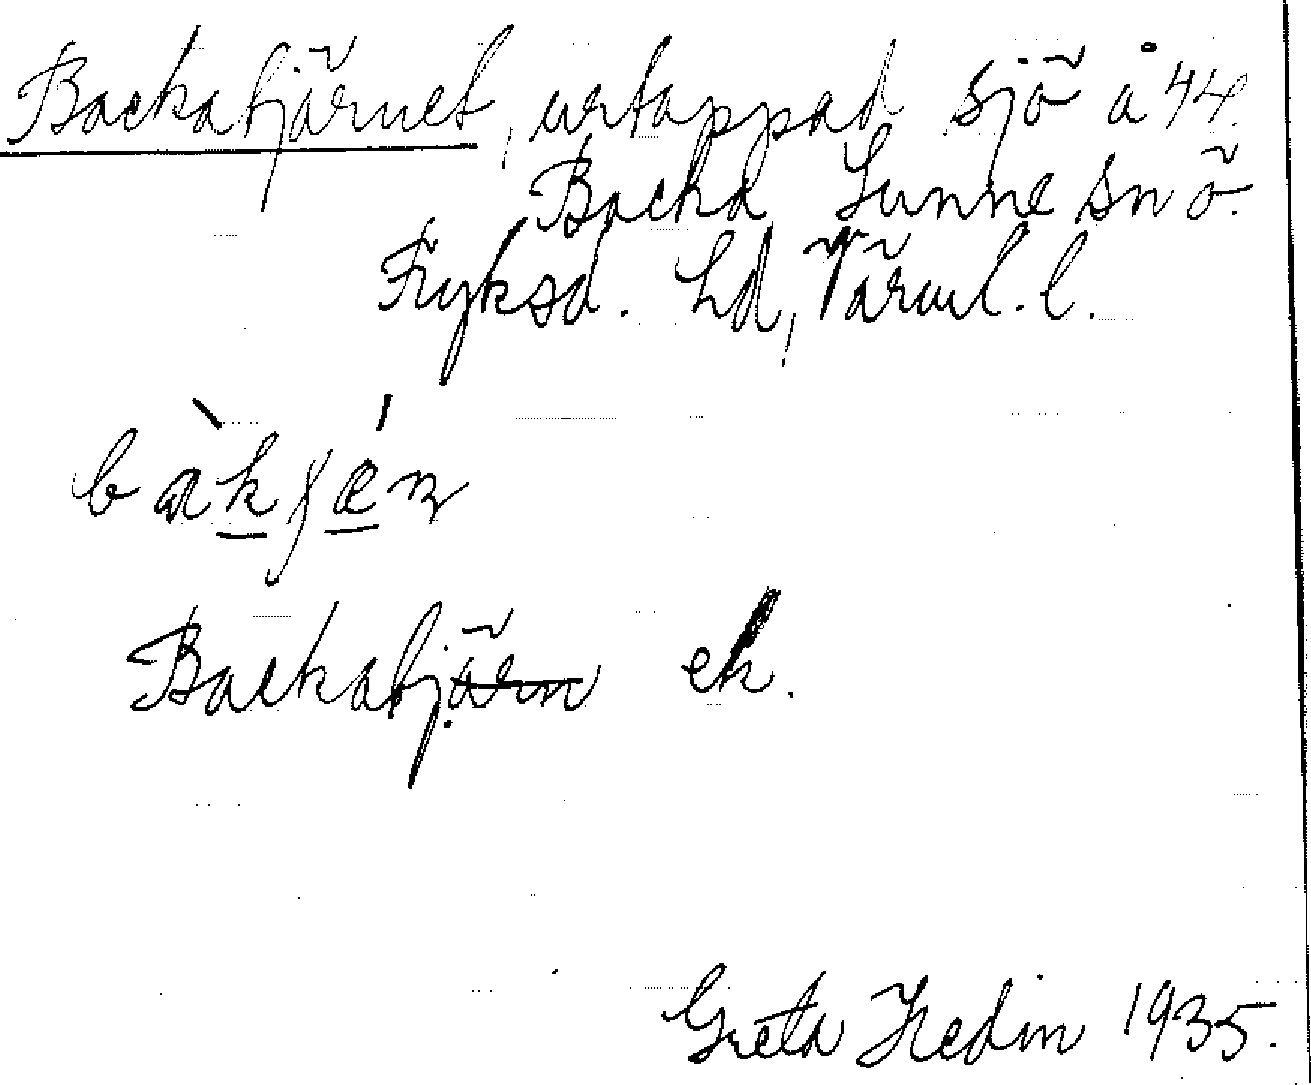 Backatjärnet, urtappad sjö å 44.
Backa Sunne sn ö.
Fryksd. hd, Värml. l.
bàkɟǽn
Backatjärn ek.
Greta Hedin 1935.